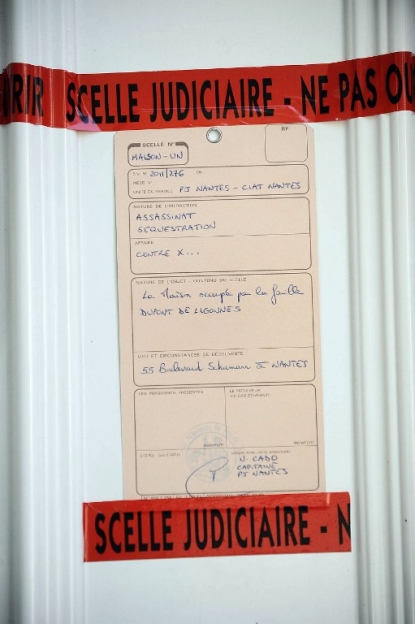 RIR SCELLE JUDICIAIRE - NE PAS OU
SCELLÉ N°
MAISON-UN
RF
P.V. N° 2011/276
PJ NANTES - CIAT NANTES
NATURE DE L'INFRACTION
ASSASSINAT
SEQUESTRATION
AFFAIRE
CONTRE X...
NATURE DE L'OBJET - CONTENU DU SCELLÉ
La Maison occupée par la famille
DUPONT DE LIGONNES
LIEU ET CIRCONSTANCES DE DÉCOUVERTE
55 Boulevard Schuman à NANTES
LES PERSONNES PRÉSENTES
N. CADO
CAPITAINE
PJ NANTES
SCELLE JUDICIAIRE - N